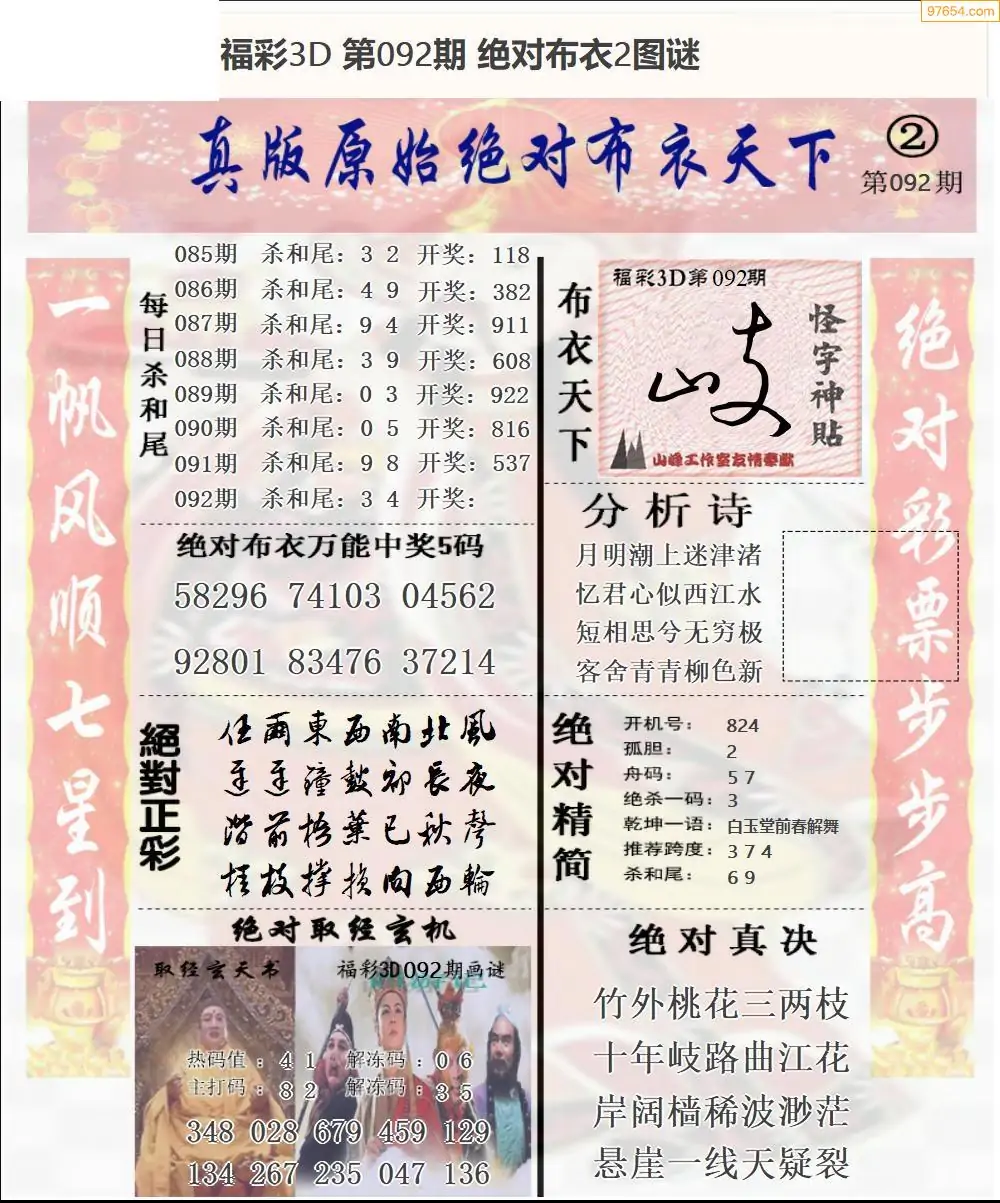 97654.com
福彩3D 第092期 绝对布衣2图谜
真版原始绝对布衣天下
②
第092期
一帆风顺七星到
每日杀和尾
085期 杀和尾：3 2 开奖：118
086期 杀和尾：4 9 开奖：382
087期 杀和尾：9 4 开奖：911
088期 杀和尾：3 9 开奖：608
089期 杀和尾：0 3 开奖：922
090期 杀和尾：0 5 开奖：816
091期 杀和尾：9 8 开奖：537
092期 杀和尾：3 4 开奖：
绝对布衣万能中奖5码
58296 74103 04562
92801 83476 37214
絕對正彩
任爾東西南北風
遲遲鐘鼓初長夜
階前梧葉已秋聲
桂枝撑損向西輪
绝对取经玄机
取经玄天书
福彩3D092期画谜
热码值：4 1 解冻码：0 6
主打码：8 2 解冻码：3 5
348 028 679 459 129
134 267 235 047 136
布衣天下
福彩3D第092期
岐
怪字神貼
山峰工作室友情奉献
分析诗
月明潮上迷津渚
忆君心似西江水
短相思兮无穷极
客舍青青柳色新
绝对精简
开机号：824
孤胆：2
舟码：5 7
绝杀一码：3
乾坤一语：白玉堂前春解舞
推荐跨度：3 7 4
杀和尾：6 9
绝对真决
竹外桃花三两枝
十年岐路曲江花
岸阔樯稀波渺茫
悬崖一线天疑裂
绝对彩票步步高